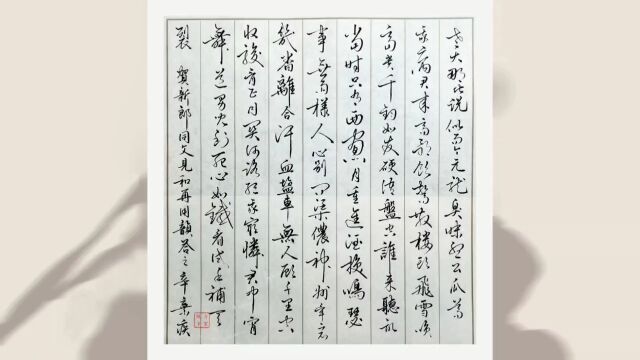 老大那堪說似而今元龍臭味孟公瓜葛
我病君來高歌飲驚散樓頭飛雪笑
富貴千鈞如髮硬語盤空誰來聽記
當時只有西窗月重進酒換鳴瑟
事無兩樣人心別問渠儂神州畢竟
幾番離合汗血鹽車無人顧千里空
收駿骨正目斷關河路絕我最憐君中宵
舞道男兒到死心如鐵看試手補天
裂 賀新郎同父見和再用韻答之 辛棄疾